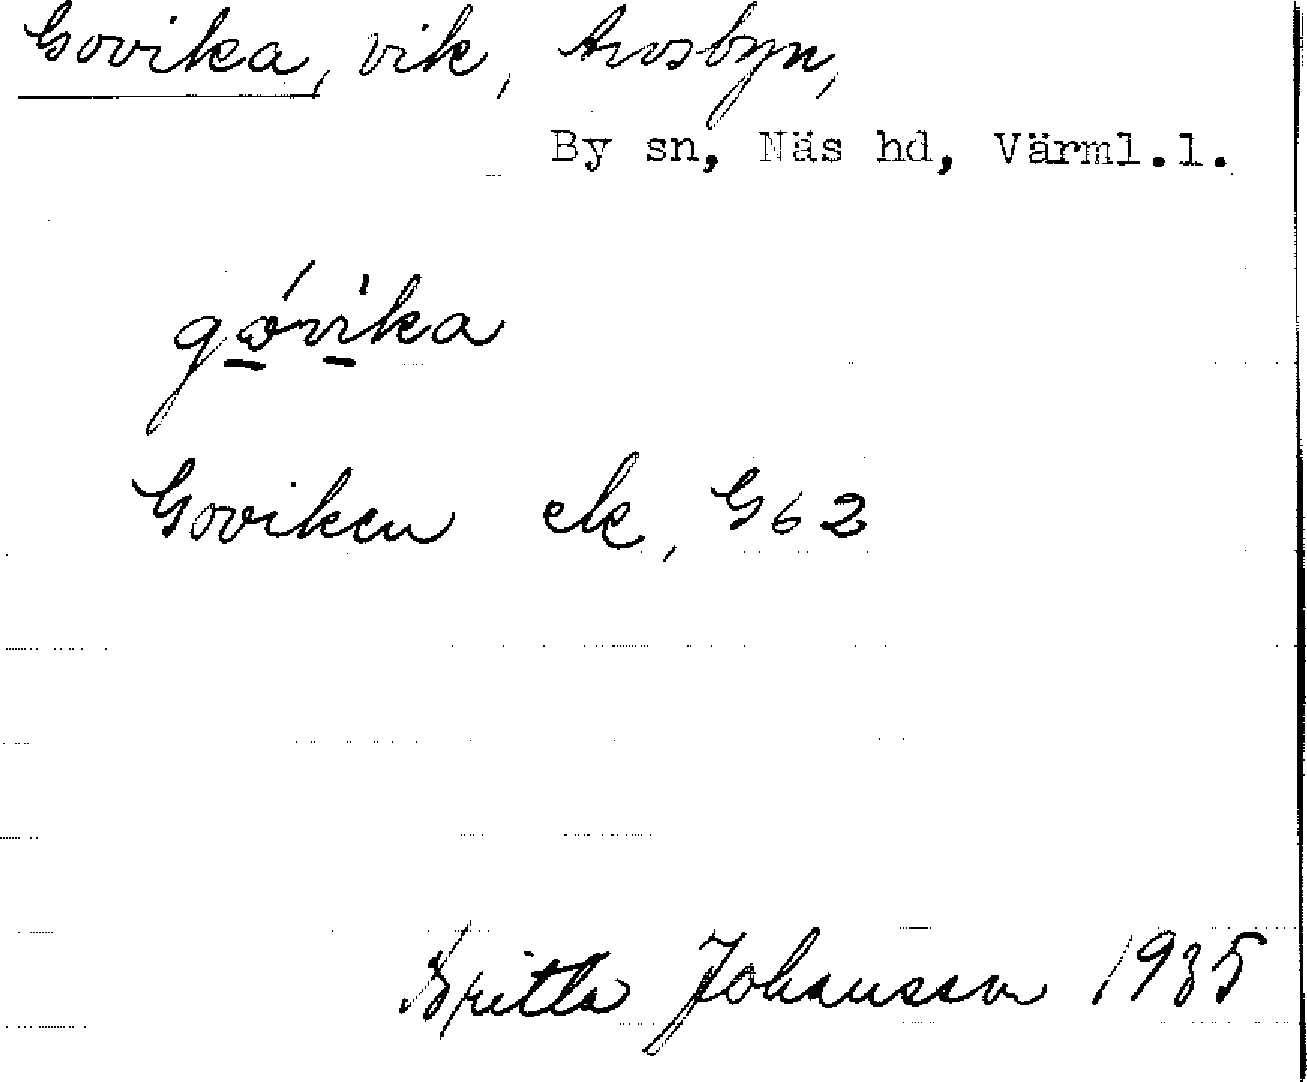 Govika, vik, Avosbyn,
By sn, Näs hd, Värml.l.
góvika
Goviken ek, G62
Britta Johansson 1935